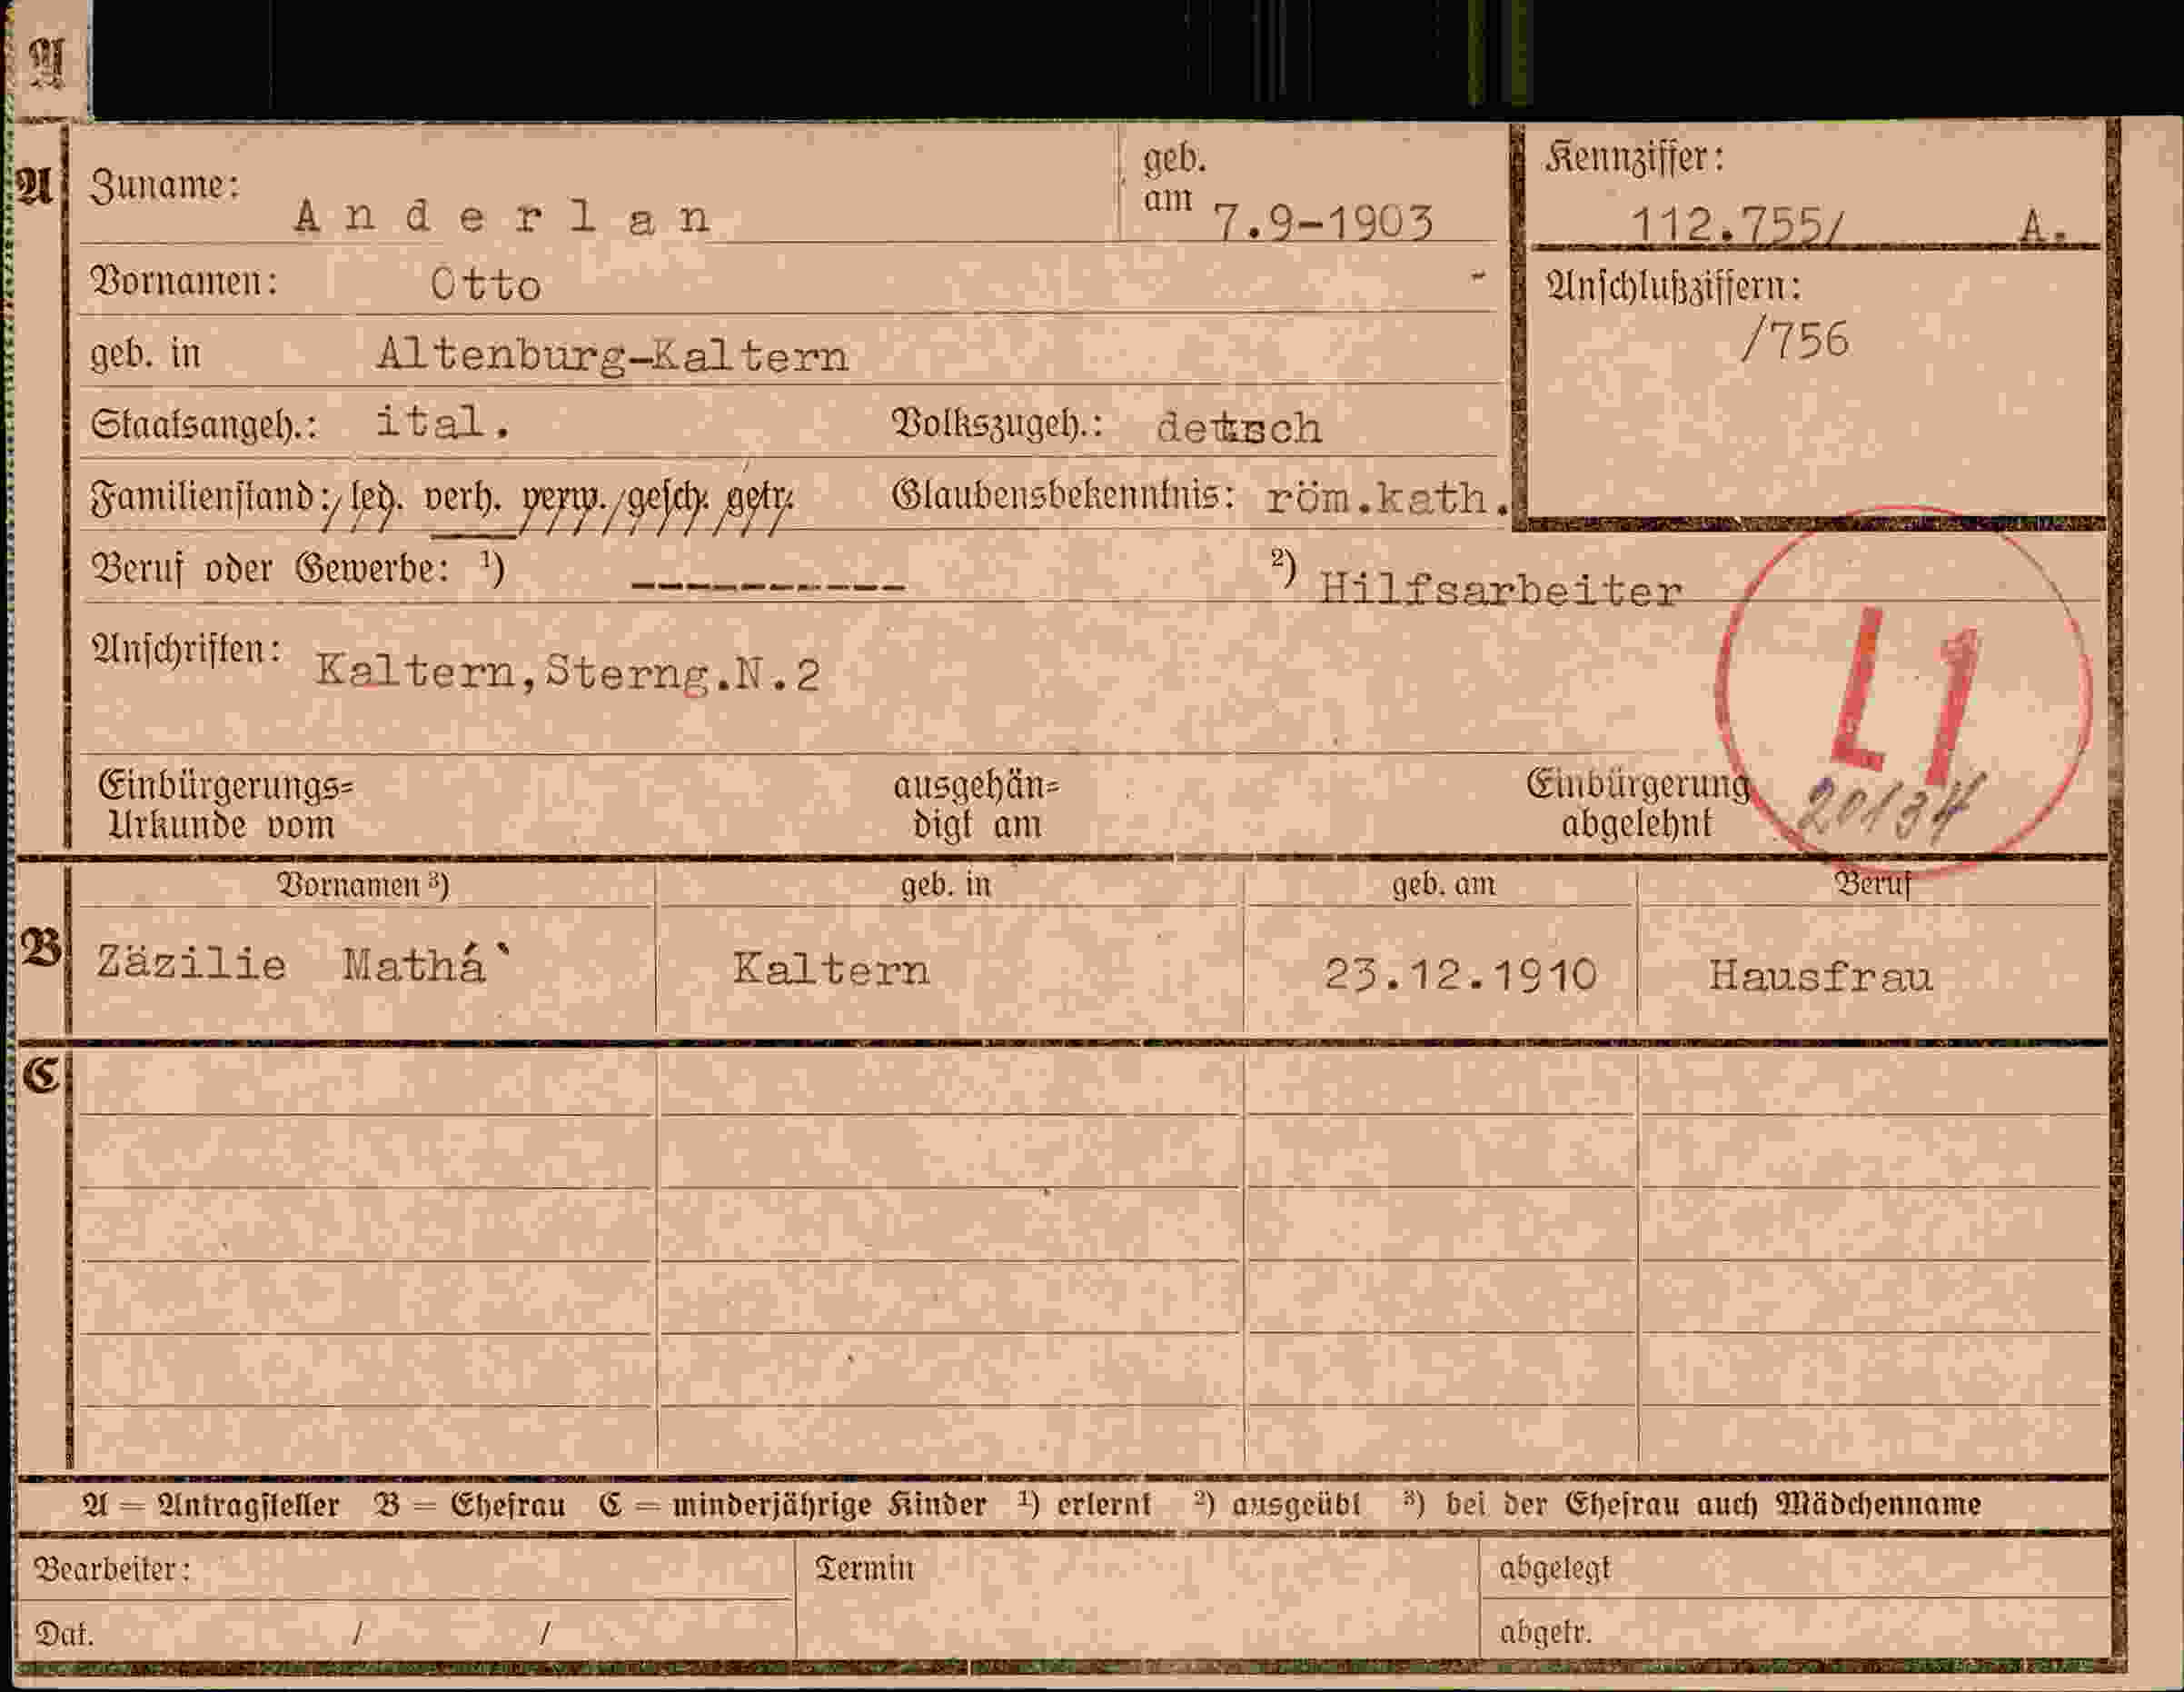 A
A Zuname: Anderlan geb. am 7.9-1903 Kennziffer: 112.755/ A.
Vornamen: Otto - Anschlußziffern:
/756
geb. in Altenburg-Kaltern
Staatsangeh.: ital. Volkszugeh.: detsch
Familienstand: led. verh. verw. gesch. getr. Glaubensbekenntnis: röm.kath.
Beruf oder Gewerbe: ¹) ---------- ²) Hilfsarbeiter
Anschriften: Kaltern, Sterng.N.2
L1
Einbürgerungs= ausgehän= Einbürgerung 20134
Urkunde vom digt am abgelehnt
Vornamen ³) geb. in geb. am Beruf
B Zäzilie Mathá` Kaltern 23.12.1910 Hausfrau
C
A = Antragsteller B = Ehefrau C = minderjährige Kinder ¹) erlernt ²) ausgeübt ³) bei der Ehefrau auch Mädchenname
Bearbeiter: Termin abgelegt
Dat. / / abgetr.